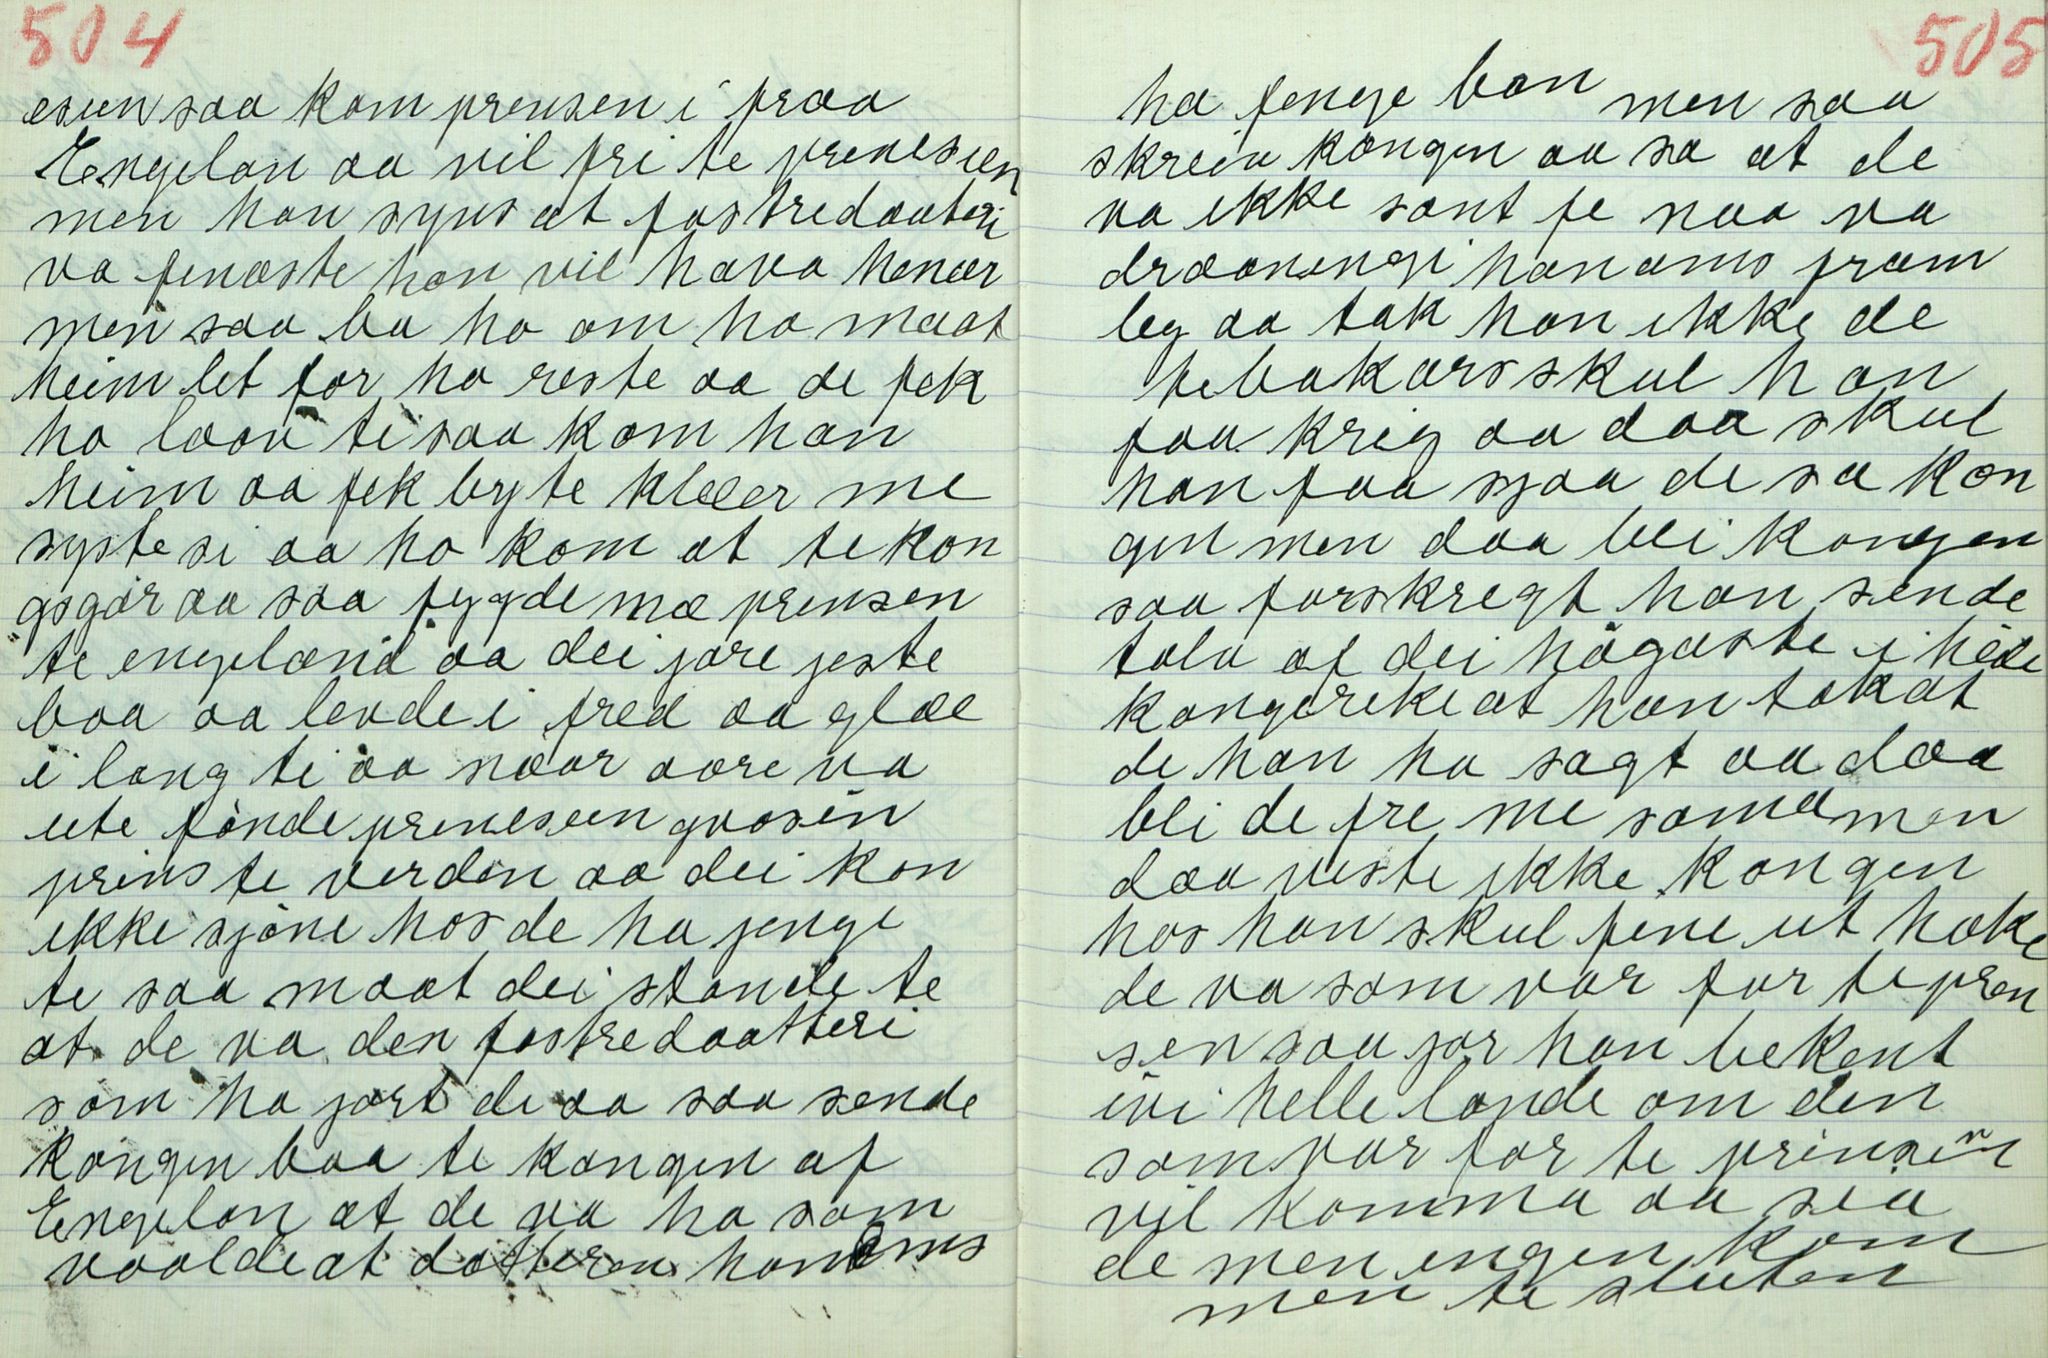 504
esen saa kom prensen i fraa
Engelan aa vil fri te prenesen
men han syns at fostredaateri
va fenaste han vil hava henær
men saa ba ho om ho maat
heim let for ho reste aa de fek
ho laav te saa kom han
heim aa fek byte kleer me
syste si aa ho kom at te kon
gsgår aa saa fygde mæ prensen
te engeland aa dei jore jeste
boa aa levde i fred aa glæe
i lang ti aa naar aare va
ute fønde prenesen gvasén
prins te verden aa dei kon
ikke sjøne hos de ha jenge
te saa maat dei stande te
at de va den fostredaatteri
som ha jort de aa saa sende
kongen boa te kongen af
Engelan at de va ho som
vaalde at dotteren hanoms
505
ha fenge bon men saa
skreiv kongen aa sa at de
va ikke sant fe naa va
draanengi hanoms fram
leg aa tok han ikke de
tebakars skul han
faa krig aa daa skul
han faa sjaa de sa kon
gen men daa blei kongen
saa forskregt han sende
tolv af dei høgaste i hele
kongereke at han tok at
de han ha sagt aa daa
blei de fre me somæ men
daa veste ikke kongen
hos han skul fine ut hoke
de va som var for te pren
sen saa jor han bekent
ivi helle lande om den
som var for te prinsen
vil komma aa seia
de men engen kom
men te sluten